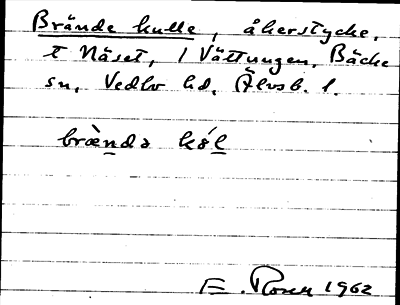 Brände kulle, åkerstycke,
t Näset, / Vättungen, Bäcke
sn, Vedbo hd, Älvsb. l.
bræ̀ndə kǿl
E. Rosen 1962